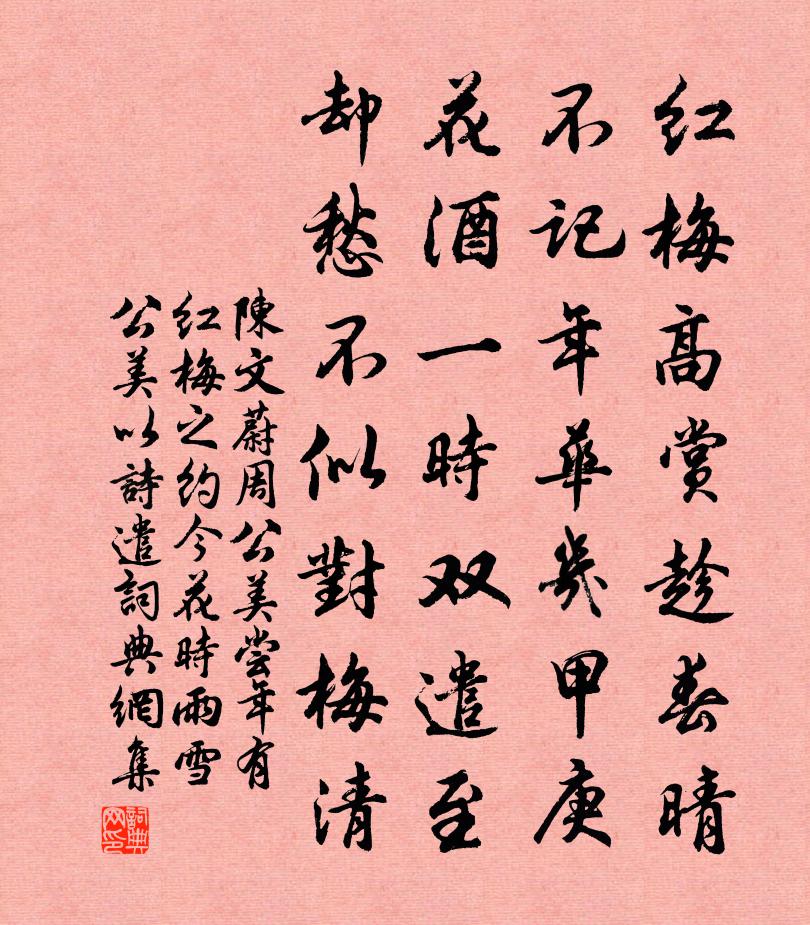 红梅高賞趁春晴
不记年華幾甲庚
花酒一時双遣至
却愁不似對梅清
陳文蔚周公美尝年有
红梅之约今花時雨雪
公美以詩遣詞典網集
詞典网印